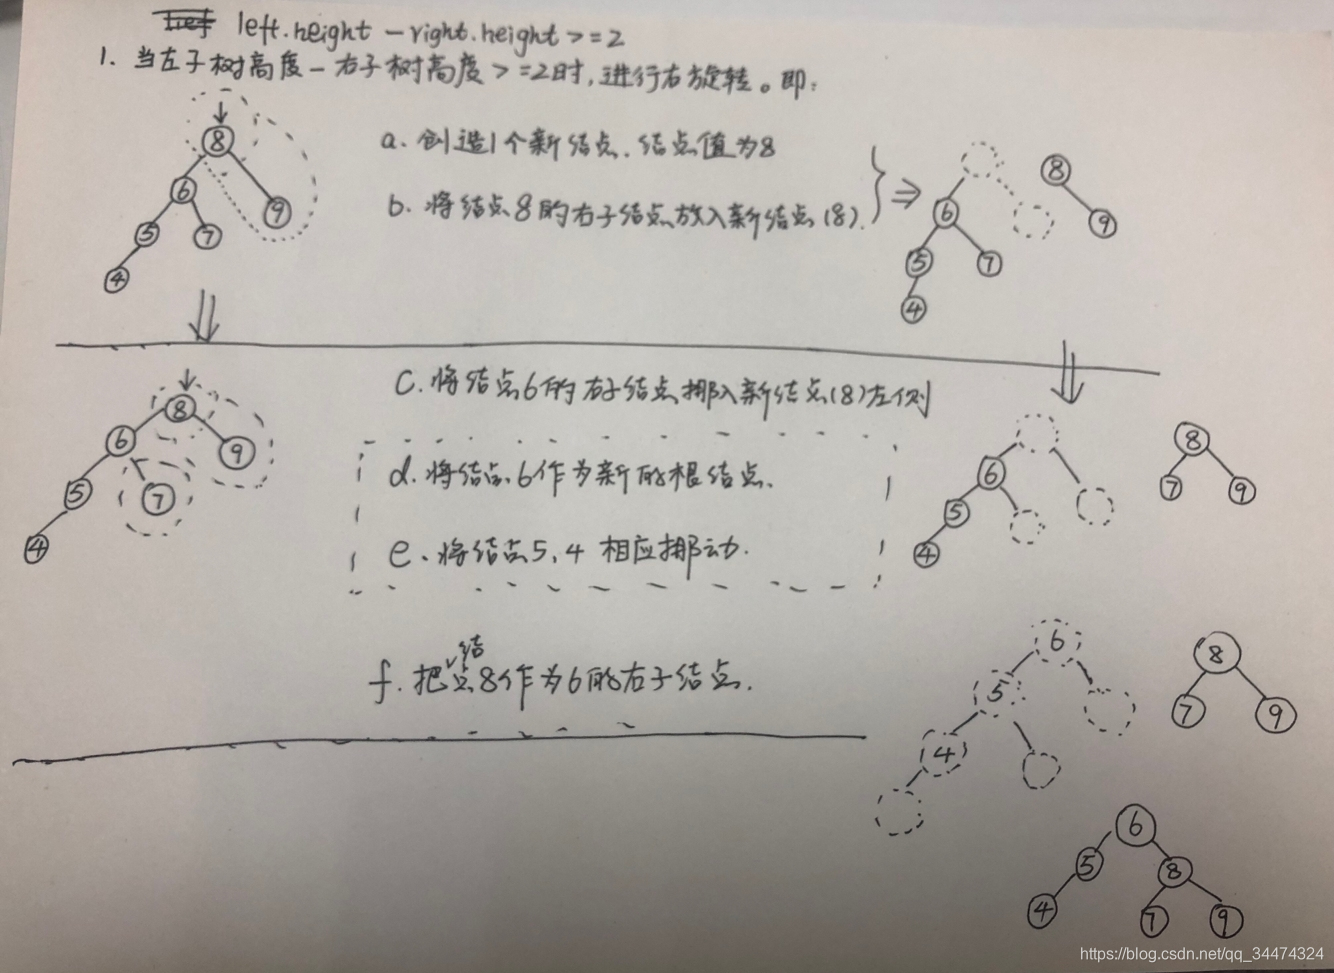 left.height - right.height >= 2
1. 当左子树高度 - 右子树高度 >=2时,进行右旋转。即:
8
6
9
5
7
4
a. 创造1个新结点.结点值为8
b. 将结点8的右子结点放入新结点(8).
6
5
7
4
8
9
8
6
9
5
7
4
c. 将结点6的右子结点挪入新结点(8)左侧
d. 将结点6作为新的根结点.
e. 将结点5,4 相应挪动.
6
5
4
8
7
9
f. 把结点8作为6的右子结点.
6
5
4
8
7
9
6
5
8
4
7
9
https://blog.csdn.net/qq_34474324